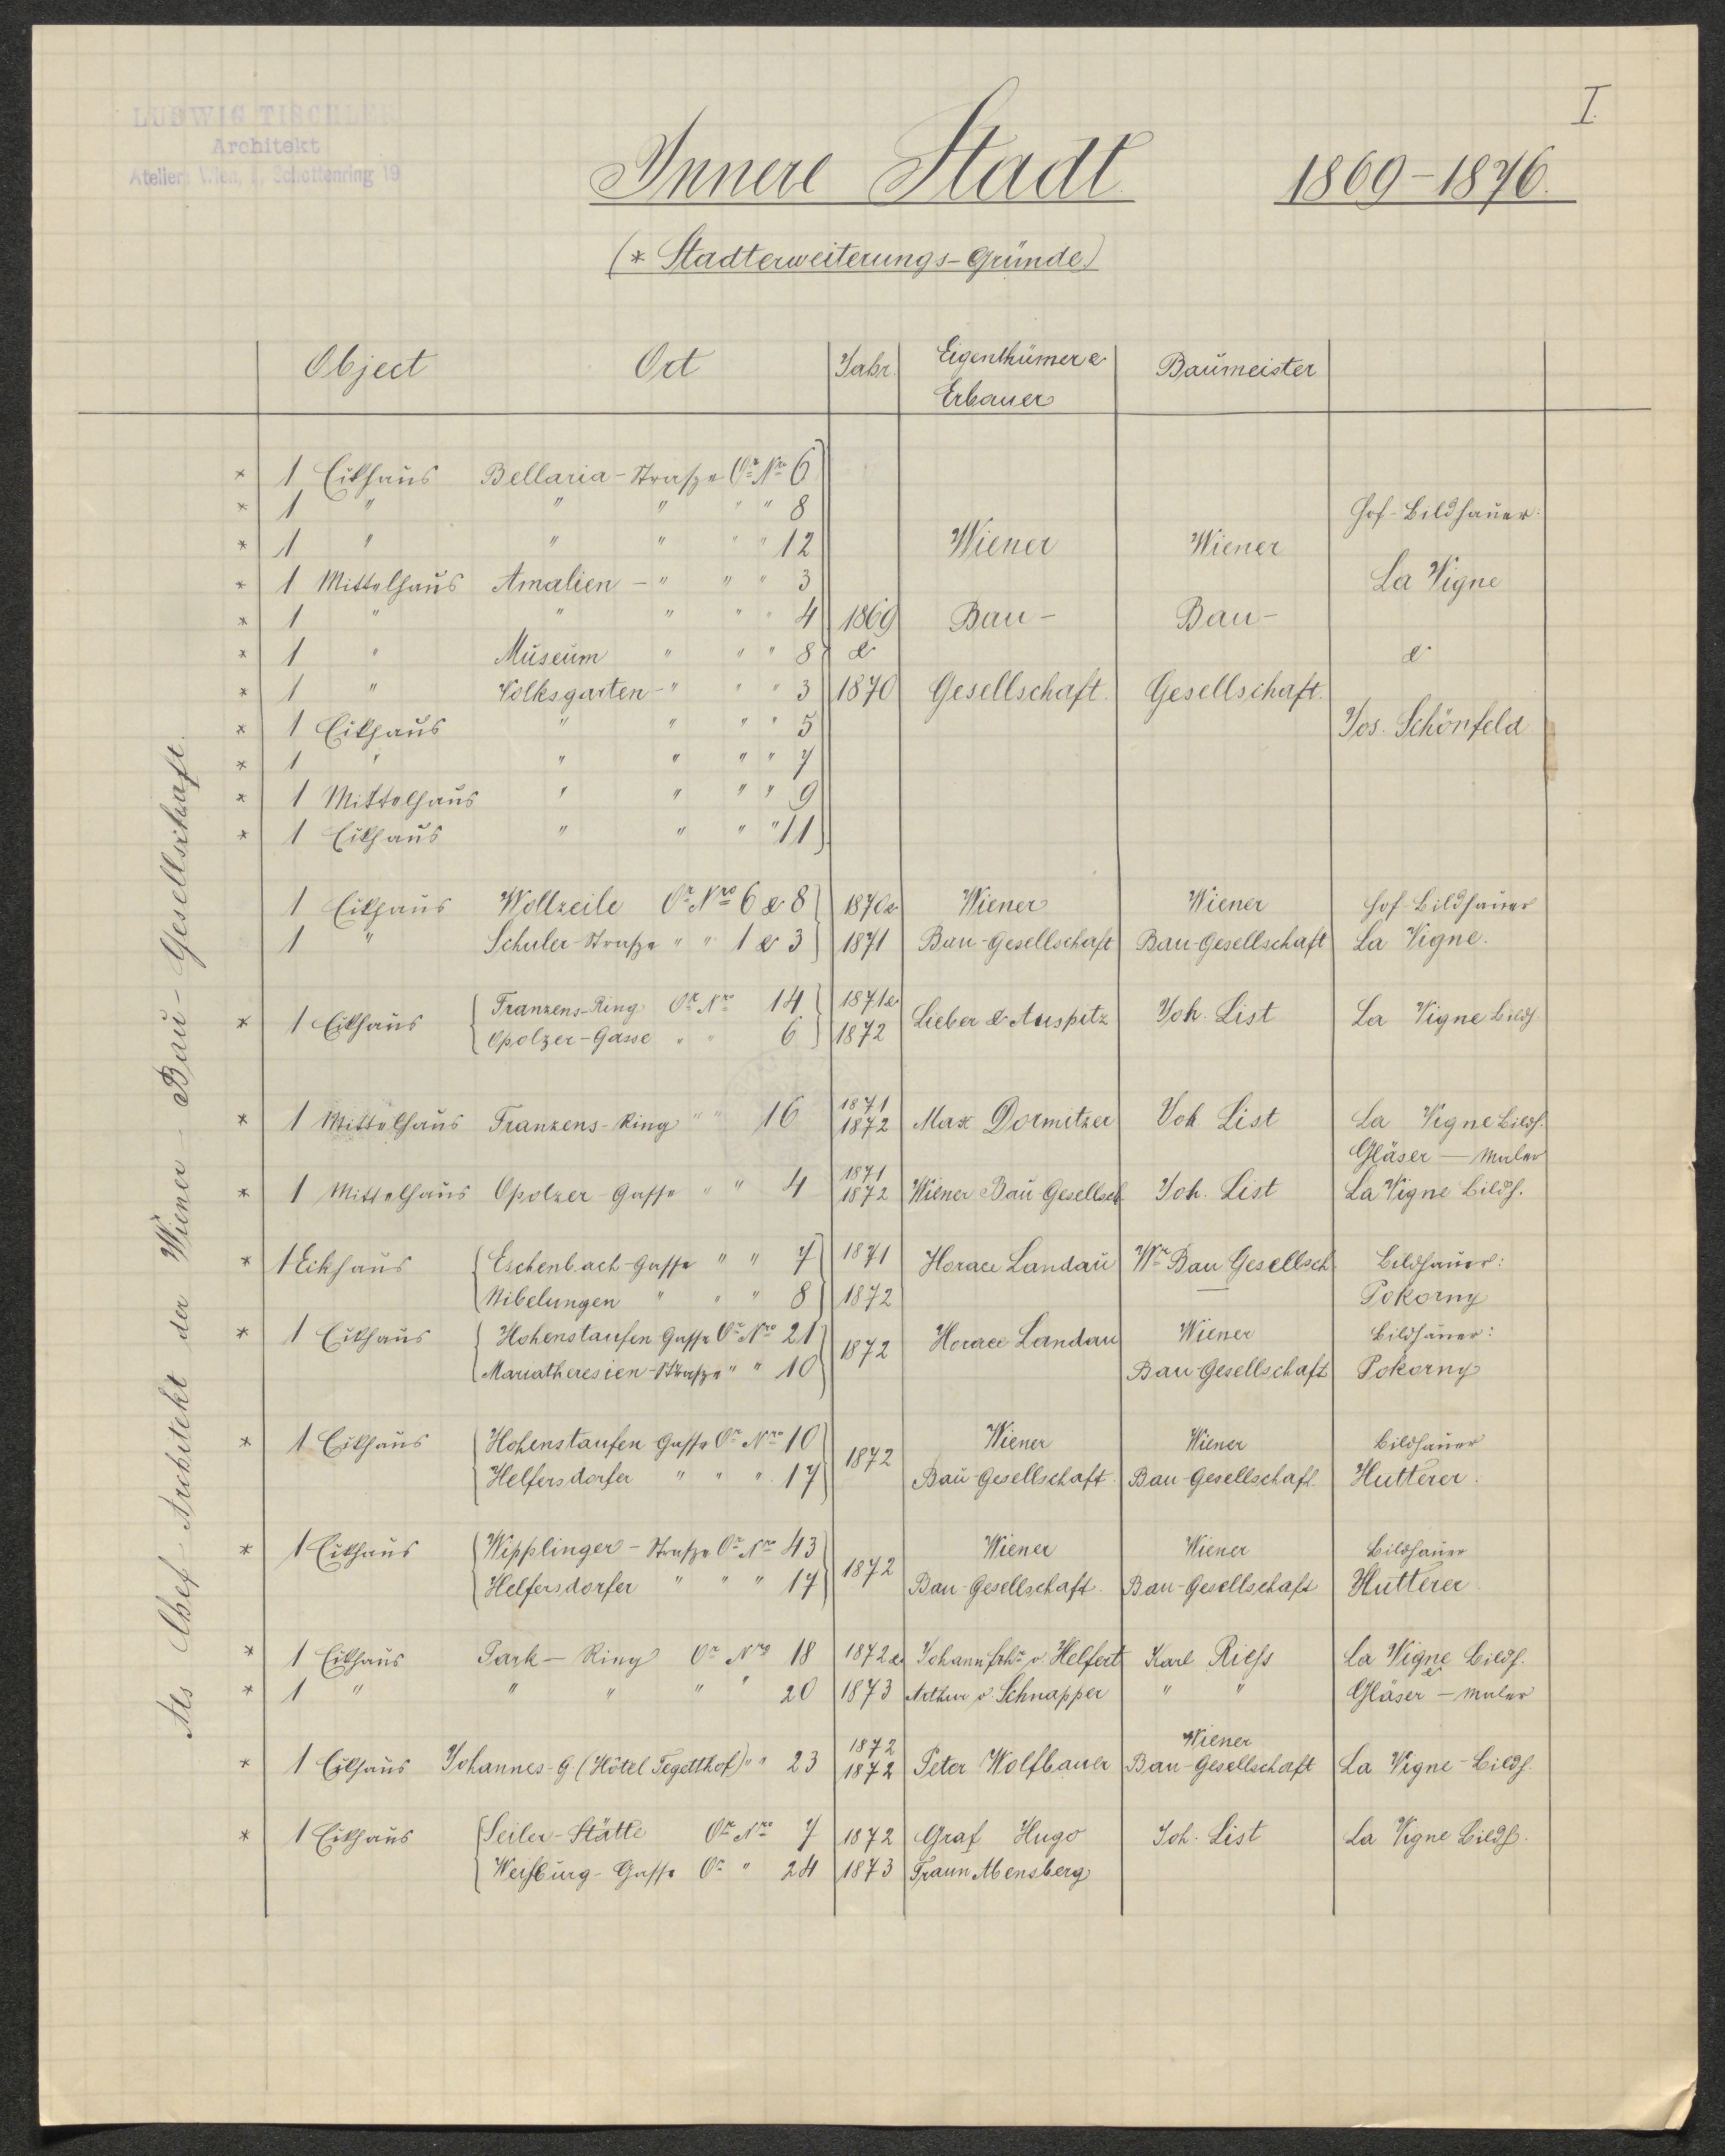 I.
LUDWIG TISCHLER
Architekt
Atelier: Wien, I. Schottenring 19
Innere Stadt 1869-1876.
(* Stadterweiterungs-Gründe)
Object Ort Jahr. Eigenthümer & Erbauer Baumeister
Als Chef-Architekt der Wiener-Bau-Gesellschaft.
* 1 Eckhaus Bellaria-Strasse Or. Nro 6
* 1 " " " " " 8 Hof-Bildhauer:
* 1 " " " " " 12 Wiener Wiener
* 1 Mittelhaus Amalien-" " " 3 La Vigne
* 1 " " " " " 4 1869 Bau- Bau-
* 1 " Museum " " " 8 & &
* 1 " Volksgarten-" " " 3 1870 Gesellschaft. Gesellschaft.
* 1 Eckhaus " " " " 5 Jos. Schönfeld
* 1 " " " " " 7
* 1 Mittelhaus " " " " 9
* 1 Eckhaus " " " " 11
1 Eckhaus Wollzeile Or. Nro 6 & 8 1870 & Wiener Wiener Hof-Bildhauer
1 " Schuler-Strasse " " 1 & 3 1871 Bau-Gesellschaft Bau-Gesellschaft La Vigne.
* 1 Eckhaus Franzens-Ring Or. Nro 14 1871 & Lieber & Auspitz Joh. List La Vigne Bildh.
Opolzer-Gasse " " 6 1872
* 1 Mittelhaus Franzens-Ring " " 16 1871 1872 Max Dormitzer Joh List La Vigne Bildh.
Gläser — Maler
* 1 Mittelhaus Opolzer-Gasse " " 4 1871 1872 Wiener Bau Gesellsch. Joh. List La Vigne Bildh.
* 1 Eckhaus Eschenbach-Gasse " " 7 1871 Horace Landau Wr. Bau Gesellsch. Bildhauer:
Nibelungen " " " 8 1872 — Pokorny
* 1 Eckhaus Hohenstaufen Gasse Or. Nro 21 1872 Horace Landau Wiener Bildhauer:
Mariatheresien-Strasse " " 10 Bau-Gesellschaft Pokorny
* 1 Eckhaus Hohenstaufen Gasse Or. Nro 10 1872 Wiener Wiener Bildhauer
Helfersdorfer " " " 17 Bau-Gesellschaft. Bau-Gesellschaft. Hutterer.
* 1 Eckhaus Wipplinger-Strasse Or. Nro 43 1872 Wiener Wiener Bildhauer
Helfersdorfer " " " 17 Bau-Gesellschaft. Bau-Gesellschaft Hutterer
* 1 Eckhaus Park-Ring Or. Nro 18 1872 & Johann Frhr. v. Helfert Karl Riess La Vigne Bildh.
&
* 1 " " " " " 20 1873 Arthur v. Schnapper " " Gläser - Maler
* 1 Eckhaus Johannes-G. (Hôtel Tegetthof) " " 23 1872 1872 Peter Wolfbauer Wiener Bau-Gesellschaft La Vigne-Bildh.
* 1 Eckhaus Seiler-Stätte Or. Nro 7 1872 Graf Hugo Joh. List La Vigne Bildh.
Weihburg-Gasse Or. " 24 1873 Traun Abensberg